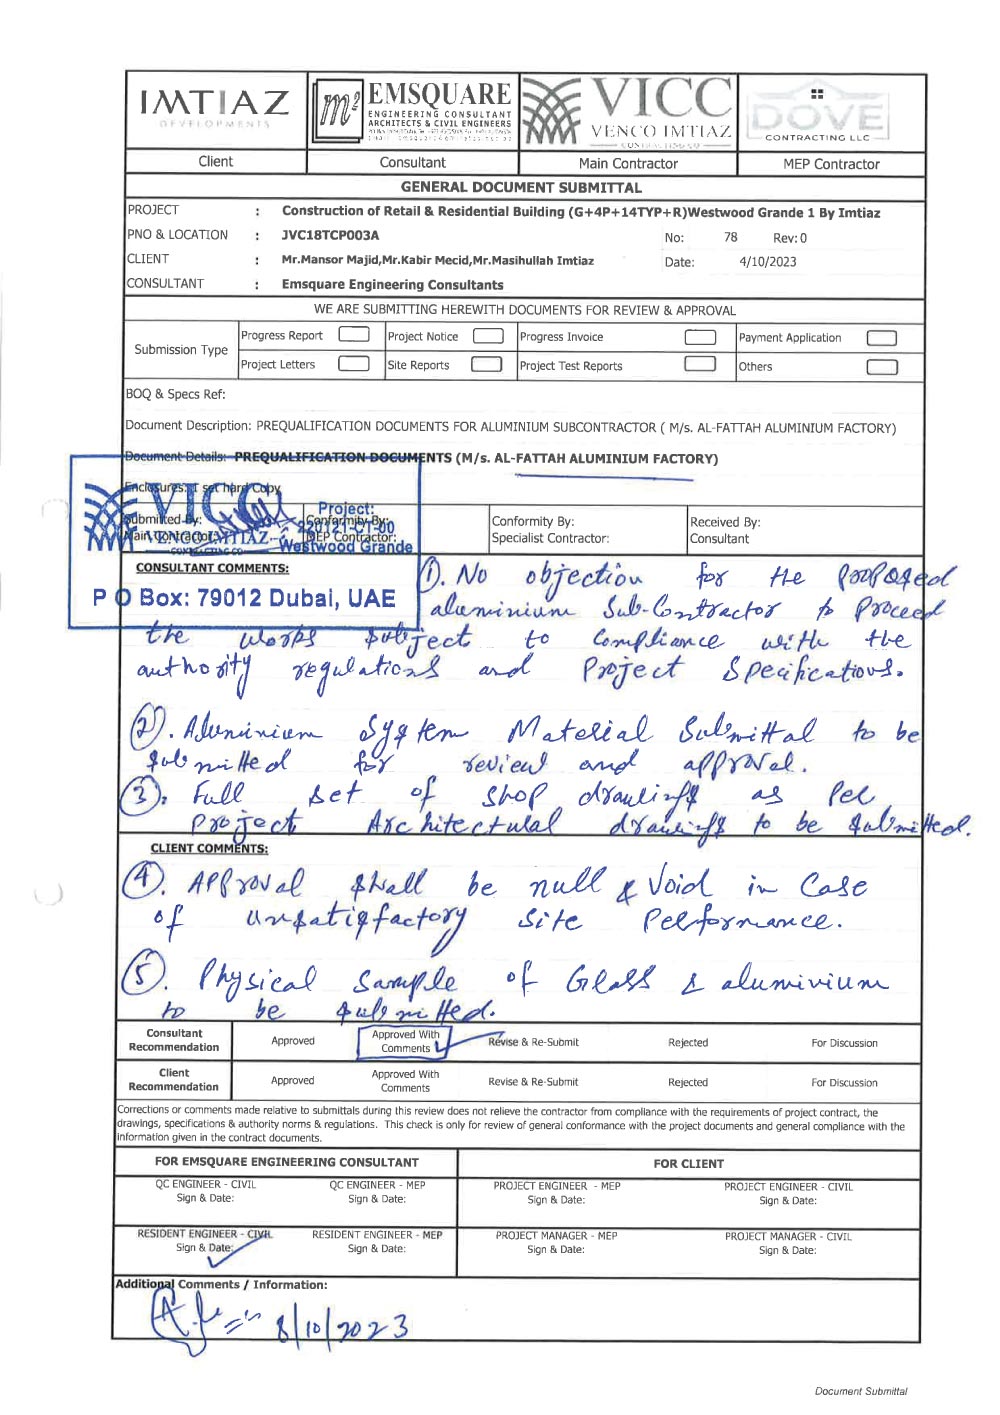 IMTIAZ
DEVELOPMENTS
m²
EMSQUARE
ENGINEERING CONSULTANT
ARCHITECTS & CIVIL ENGINEERS
VICC
VENCO IMTIAZ
CONTRACTING CO
DOVE
CONTRACTING LLC
Client
Consultant
Main Contractor
MEP Contractor
GENERAL DOCUMENT SUBMITTAL
PROJECT : Construction of Retail & Residential Building (G+4P+14TYP+R)Westwood Grande 1 By Imtiaz
PNO & LOCATION : JVC18TCP003A No: 78 Rev: 0
CLIENT : Mr.Mansor Majid,Mr.Kabir Mecid,Mr.Masihullah Imtiaz Date: 4/10/2023
CONSULTANT : Emsquare Engineering Consultants
WE ARE SUBMITTING HEREWITH DOCUMENTS FOR REVIEW & APPROVAL
Submission Type
Progress Report Project Notice Progress Invoice Payment Application
Project Letters Site Reports Project Test Reports Others
BOQ & Specs Ref:
Document Description: PREQUALIFICATION DOCUMENTS FOR ALUMINIUM SUBCONTRACTOR ( M/s. AL-FATTAH ALUMINIUM FACTORY)
Document Details: PREQUALIFICATION DOCUMENTS (M/s. AL-FATTAH ALUMINIUM FACTORY)
Enclosures: 1 set hard Copy
Submitted By:
Main Contractor:
Conformity By:
MEP Contractor:
Conformity By:
Specialist Contractor:
Received By:
Consultant
VICC
VENCO IMTIAZ
CONTRACTING CO
Project:
220121-CT-00
Westwood Grande
P O Box: 79012 Dubai, UAE
CONSULTANT COMMENTS:
1). No objection for the proposed
aluminium Sub-Contractor to proceed
the works subject to compliance with the
authority regulations and Project Specifications.
2). Aluminium System Material Submittal to be
submitted for review and approval.
3). Full set of shop drawings as per
project Architectural drawings to be submitted.
CLIENT COMMENTS:
4). Approval shall be null & void in case
of unsatisfactory site performance.
5). Physical sample of Glass & aluminium
to be submitted.
Consultant Recommendation
Approved
Approved With Comments
Revise & Re-Submit
Rejected
For Discussion
Client Recommendation
Approved
Approved With Comments
Revise & Re-Submit
Rejected
For Discussion
Corrections or comments made relative to submittals during this review does not relieve the contractor from compliance with the requirements of project contract, the
drawings, specifications & authority norms & regulations. This check is only for review of general conformance with the project documents and general compliance with the
information given in the contract documents.
FOR EMSQUARE ENGINEERING CONSULTANT
FOR CLIENT
QC ENGINEER - CIVIL
Sign & Date:
QC ENGINEER - MEP
Sign & Date:
PROJECT ENGINEER - MEP
Sign & Date:
PROJECT ENGINEER - CIVIL
Sign & Date:
RESIDENT ENGINEER - CIVIL
Sign & Date:
RESIDENT ENGINEER - MEP
Sign & Date:
PROJECT MANAGER - MEP
Sign & Date:
PROJECT MANAGER - CIVIL
Sign & Date:
Additional Comments / Information:
8/10/2023
Document Submittal